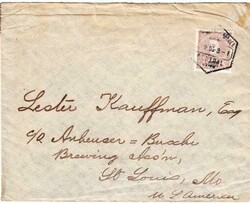 Lester Kauffman, Esq
c/o Anheuser = Busch
Brewing Ass'n,
St Louis, Mo
U.S. America